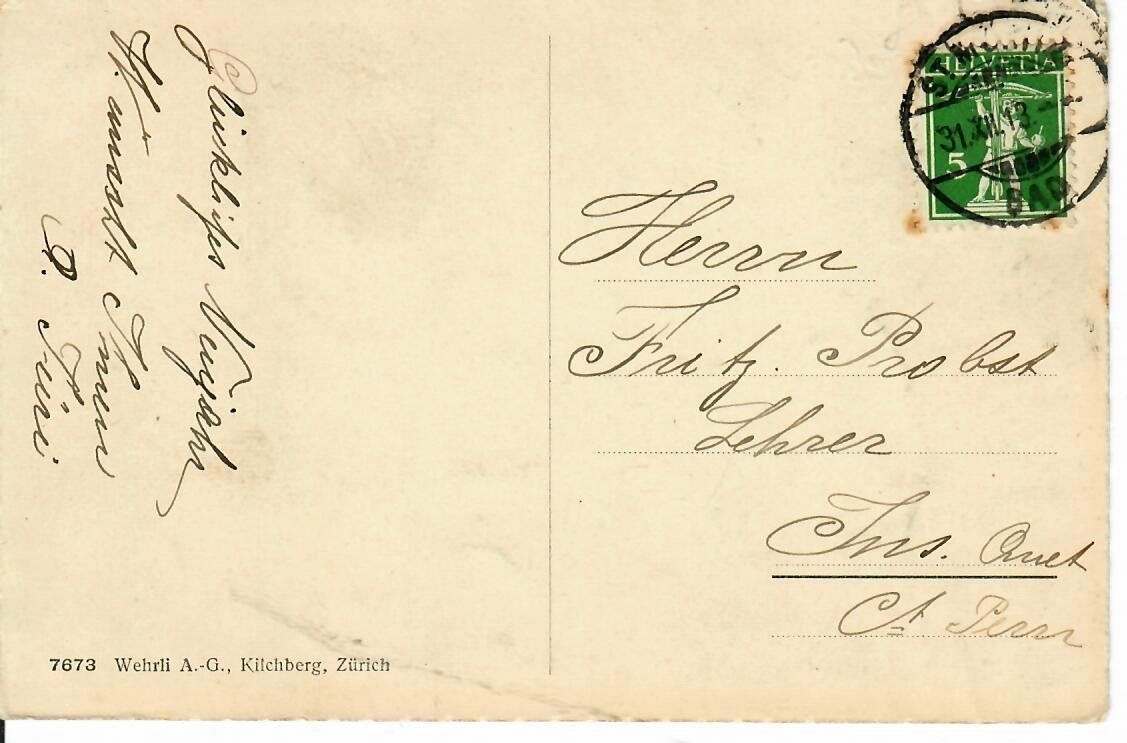 Glückliches Neujahr
Wünscht Ihnen
P.
HELVETIA
5
ST. MORITZ
31.XII.13.
BAD
Herrn
Fritz Probst
Lehrer
Ins.
Ct Bern
7673 Wehrli A.-G., Kilchberg, Zürich